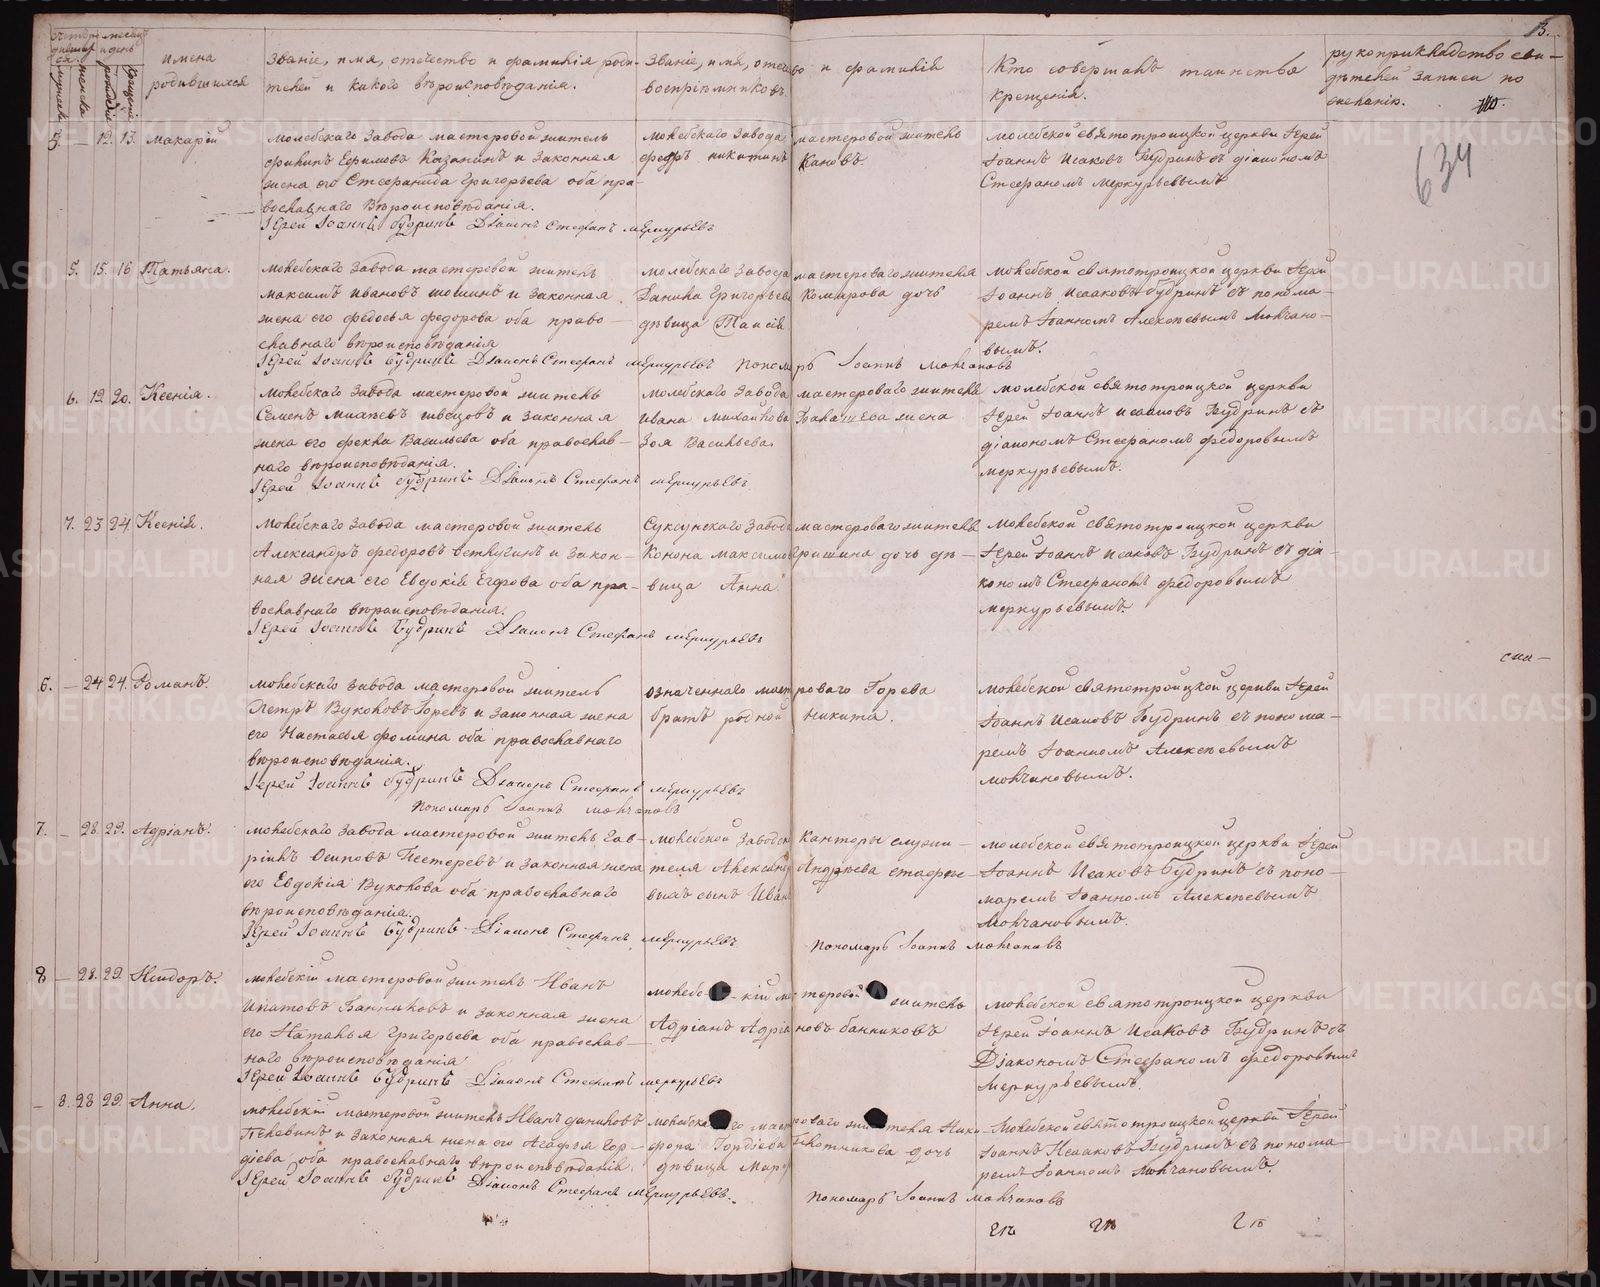 3.
имена родившихся
Званіе, имя, отечество и фамилія роди-
телей и какого вѣроисповѣданія.
Званіе, имя, отечество и фамилія
воспріемниковъ.
Кто совершалъ таинство
крещенія.
рукоприкладство сви-
дѣтелей записи по
желанію.
634
5. — 12. 13. Макарій
Молебскаго Завода мастеровой житель
Филипъ Ефимовъ Казанинъ и законная
жена его Стефанида Григорьева оба пра-
вославнаго Вѣроисповѣданія.
Молебскаго Завода мастеровой житель
Федръ Никитинъ Кановъ.
Молебской святотроицкой церкви Іерей
Іоаннъ Исаковъ Будринъ съ діакономъ
Стефаномъ Меркурьевымъ
Іерей Іоаннъ Будринъ Діаконъ Стефанъ Меркурьевъ
5. 15. 16 Татьяна.
Молебскаго Завода мастеровой житель
Максимъ Ивановъ Шошинъ и законная
жена его Федосья Федорова оба право-
славнаго вѣроисповѣданія
Молебскаго Завода мастероваго жителя
Данила Григорьева Комарова дочь
дѣвица Таисія
Молебской святотроицкой церкви Іерей
Іоаннъ Исаковъ Будринъ съ понома-
ремъ Іоанномъ Алексѣевымъ Молчано-
вымъ.
Іерей Іоаннъ Будринъ Діаконъ Стефанъ Меркурьевъ Пономарь Іоаннъ Молчановъ
6. 19. 20. Ксенія.
Молебскаго Завода мастеровой житель
Семенъ Швецовъ и законная
жена его Фекла Васильева оба православ-
наго вѣроисповѣданія.
Молебскаго Завода мастероваго жителя
Ивана Михайлова Балашева жена
Зоя Васильева.
Молебской святотроицкой церкви
Іерей Іоаннъ Исаковъ Будринъ съ
діакономъ Стефаномъ Федоровымъ
Меркурьевымъ.
Іерей Іоаннъ Будринъ Діаконъ Стефанъ Меркурьевъ.
7. 23 24. Ксенія.
Молебскаго Завода мастеровой житель
Александръ Федоровъ и закон-
ная жена его Евдокія Егорова оба пра-
вославнаго вѣроисповѣданія.
Суксунскаго Завода мастероваго жителя
Конона Максимова Гришина дочь дѣ-
вица Анна
Молебской святотроицкой церкви
Іерей Іоаннъ Исаковъ Будринъ съ діа-
кономъ Стефаномъ Федоровымъ
Меркурьевымъ.
Іерей Іоаннъ Будринъ Діаконъ Стефанъ Меркурьевъ
6. — 24 24. Романъ.
Молебскаго Завода мастеровой житель
Петръ Вуколовъ Горевъ и законная жена
его Настасья Фомина оба православнаго
вѣроисповѣданія.
означеннаго мастероваго Горева
братъ родной Никита.
Молебской святотроицкой церкви Іерей
Іоаннъ Исаковъ Будринъ съ понома-
ремъ Іоанномъ Алексѣевымъ
Молчановымъ.
Іерей Іоаннъ Будринъ Діаконъ Стефанъ Меркурьевъ
Пономарь Іоаннъ Молчановъ
7. — 28. 29. Адріанъ.
Молебскаго Завода мастеровой житель Гав-
ріилъ Осиповъ Пестеревъ и законная жена
его Евдокія Вуколова оба православнаго
вѣроисповѣданія.
Молебской Заводской Канторы служи-
теля Александра Андреева
сынъ Иван
Молебской святотроицкой церкви Іерей
Іоаннъ Исаковъ Будринъ съ поно-
маремъ Іоанномъ Алексѣевымъ
Молчановымъ.
Іерей Іоаннъ Будринъ Діаконъ Стефанъ Меркурьевъ Пономарь Іоаннъ Молчановъ
8 — 28. 29. Исидоръ.
Молебскій мастеровой житель Иванъ
Ипатовъ Банниковъ и законная жена
его Наталья Григорьева оба православ-
наго вѣроисповѣданія
Молебскій мастеровой житель
Адріанъ Адріановъ Банниковъ
Молебской святотроицкой церкви
Іерей Іоаннъ Исаковъ Будринъ съ
Діакономъ Стефаномъ Федоровымъ
Меркурьевымъ.
Іерей Іоаннъ Будринъ Діаконъ Стефанъ Меркурьевъ
— 8. 28 29. Анна.
Молебскій мастеровой житель Иванъ Даниловъ
Пелевинъ и законная жена его Агафья Гор-
дѣева оба православнаго вѣроисповѣданія.
Молебскаго мастероваго жителя Ники-
фора Гордѣева Плотникова дочь
дѣвица Марѳ
Молебской святотроицкой церкви Іерей
Іоаннъ Исаковъ Будринъ съ понома-
ремъ Іоанномъ Молчановымъ.
Іерей Іоаннъ Будринъ Діаконъ Стефанъ Меркурьевъ. Пономарь Іоаннъ Молчановъ
METRIKI.GASO-URAL.RU